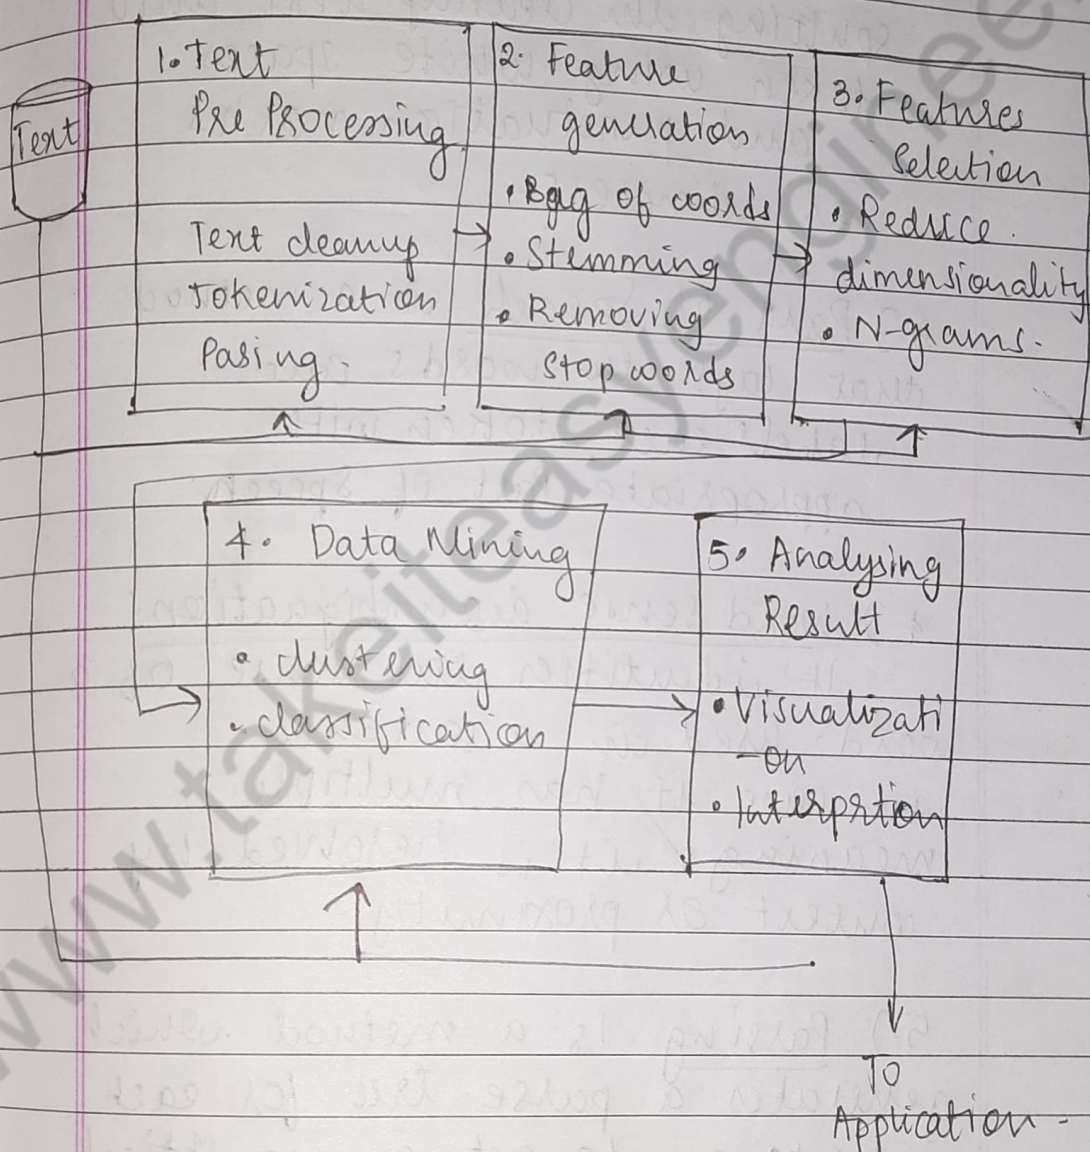 Text
1. Text
Pre Processing
Text cleanup
Tokenization
Pasing.
2. Feature
generation
• Bag of words
• Stemming
• Removing
Stop words
3. Features
Selection
• Reduce.
dimensionality
• N-grams.
4. Data Mining
• clustering
• classification
5. Analysing
Result
• Visualizati
-on
• Interprtion
TO
Application -
www.takeiteasyenginee